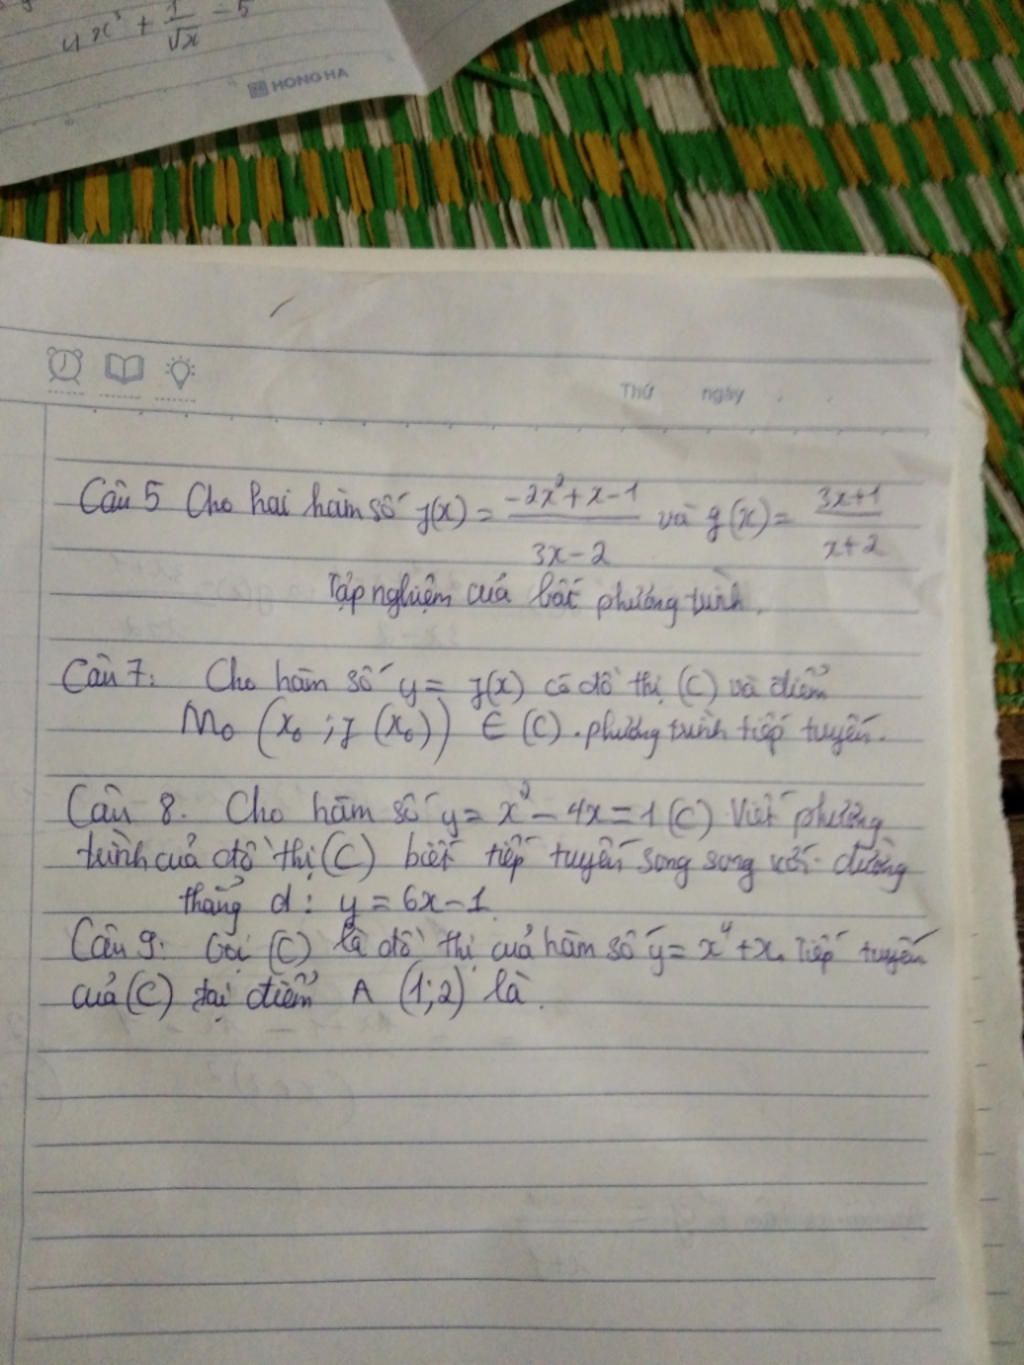 4x³ + 1/√x - 5
HONG HA
Thứ ngày
Câu 5 Cho hai hàm số f(x) = (-2x²+x-1)/(3x-2) và g(x) = (3x+1)/(x+2)
Tập nghiệm của bất phương trình.
Câu 7: Cho hàm số y = f(x) có đồ thị (C) và điểm
M₀ (x₀ ; f(x₀)) ∈ (C). phương trình tiếp tuyến.
Câu 8. Cho hàm số y = x² - 4x = 1 (C) Viết phương
trình của đồ thị (C) biết tiếp tuyến song song với đường
thẳng d : y = 6x-1
Câu 9: Gọi (C) là đồ thị của hàm số y = x⁴ + x. Tiếp tuyến
của (C) tại điểm A (1;2) là.